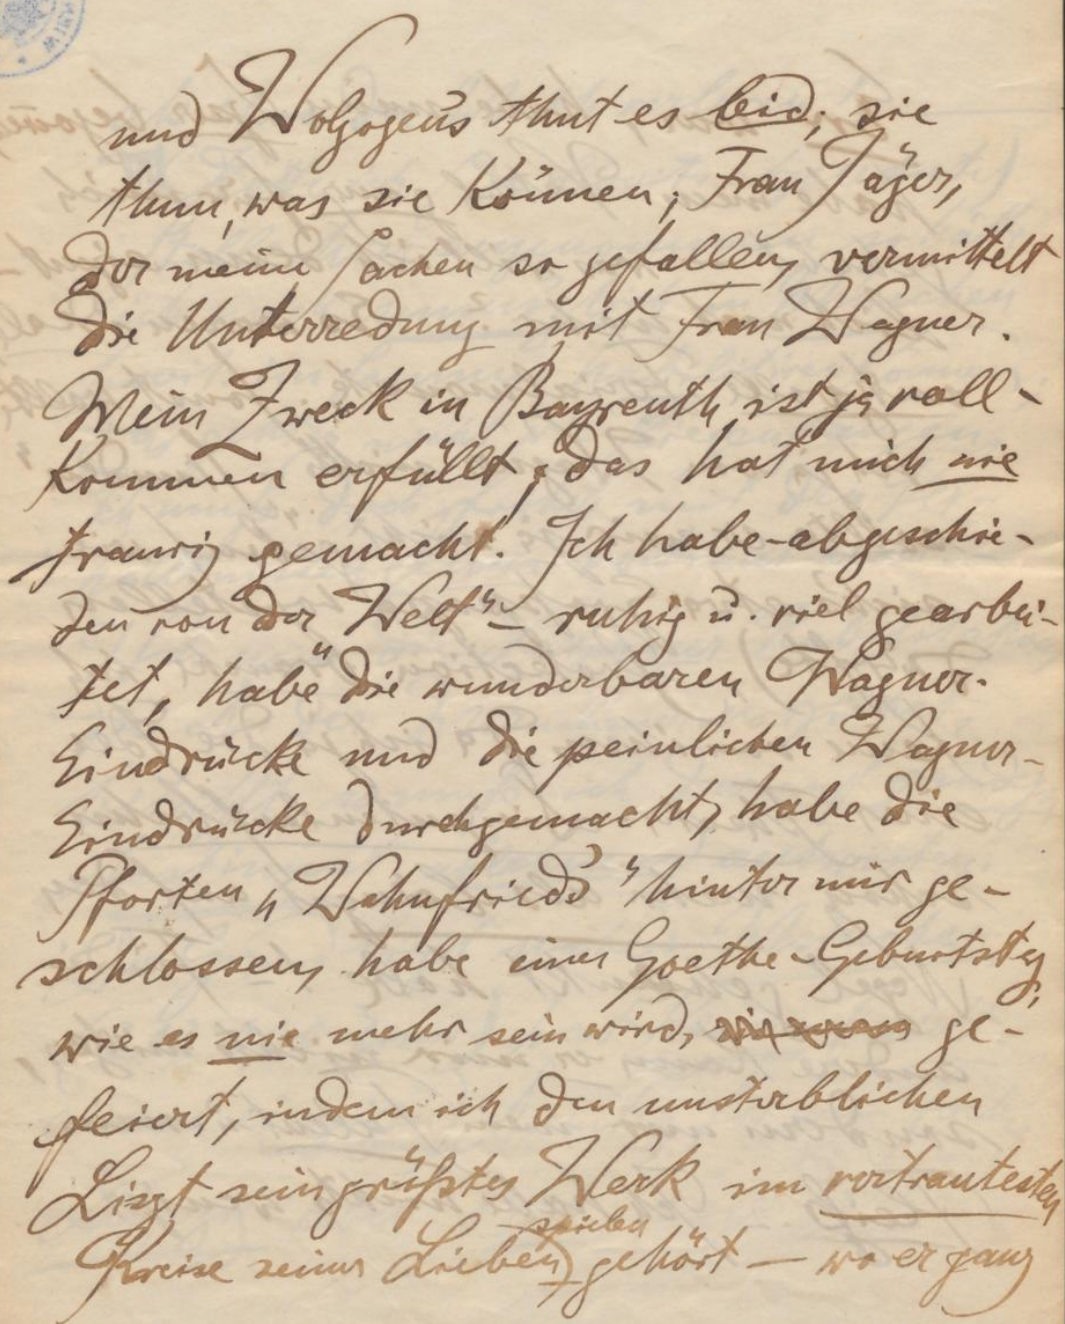 und Wolzogens thut es leid; sie
thun, was sie können; Frau Jäger,
der meine Sachen so gefallen, vermittelt
die Unterredung mit Frau Wagner.
Mein Zweck in Bayreuth ist ja voll-
kommen erfüllt; das hat mich nie
traurig gemacht. Ich habe abgeschie-
den von der „Welt“ – ruhig u. viel gearbei-
tet, habe die wunderbaren Wagner-
Eindrücke und die peinlichen Wagner-
Eindrücke durchgemacht, habe die
Pforten „Wahnfried's“ hinter mir ge-
schlossen, habe einen Goethe-Geburtstag,
wie es nie mehr sein wird, ge-
feiert, indem ich den unsterblichen
Liszt sein größtes Werk im vertrautesten
Kreise seiner Lieben spielen gehört – wo er ganz